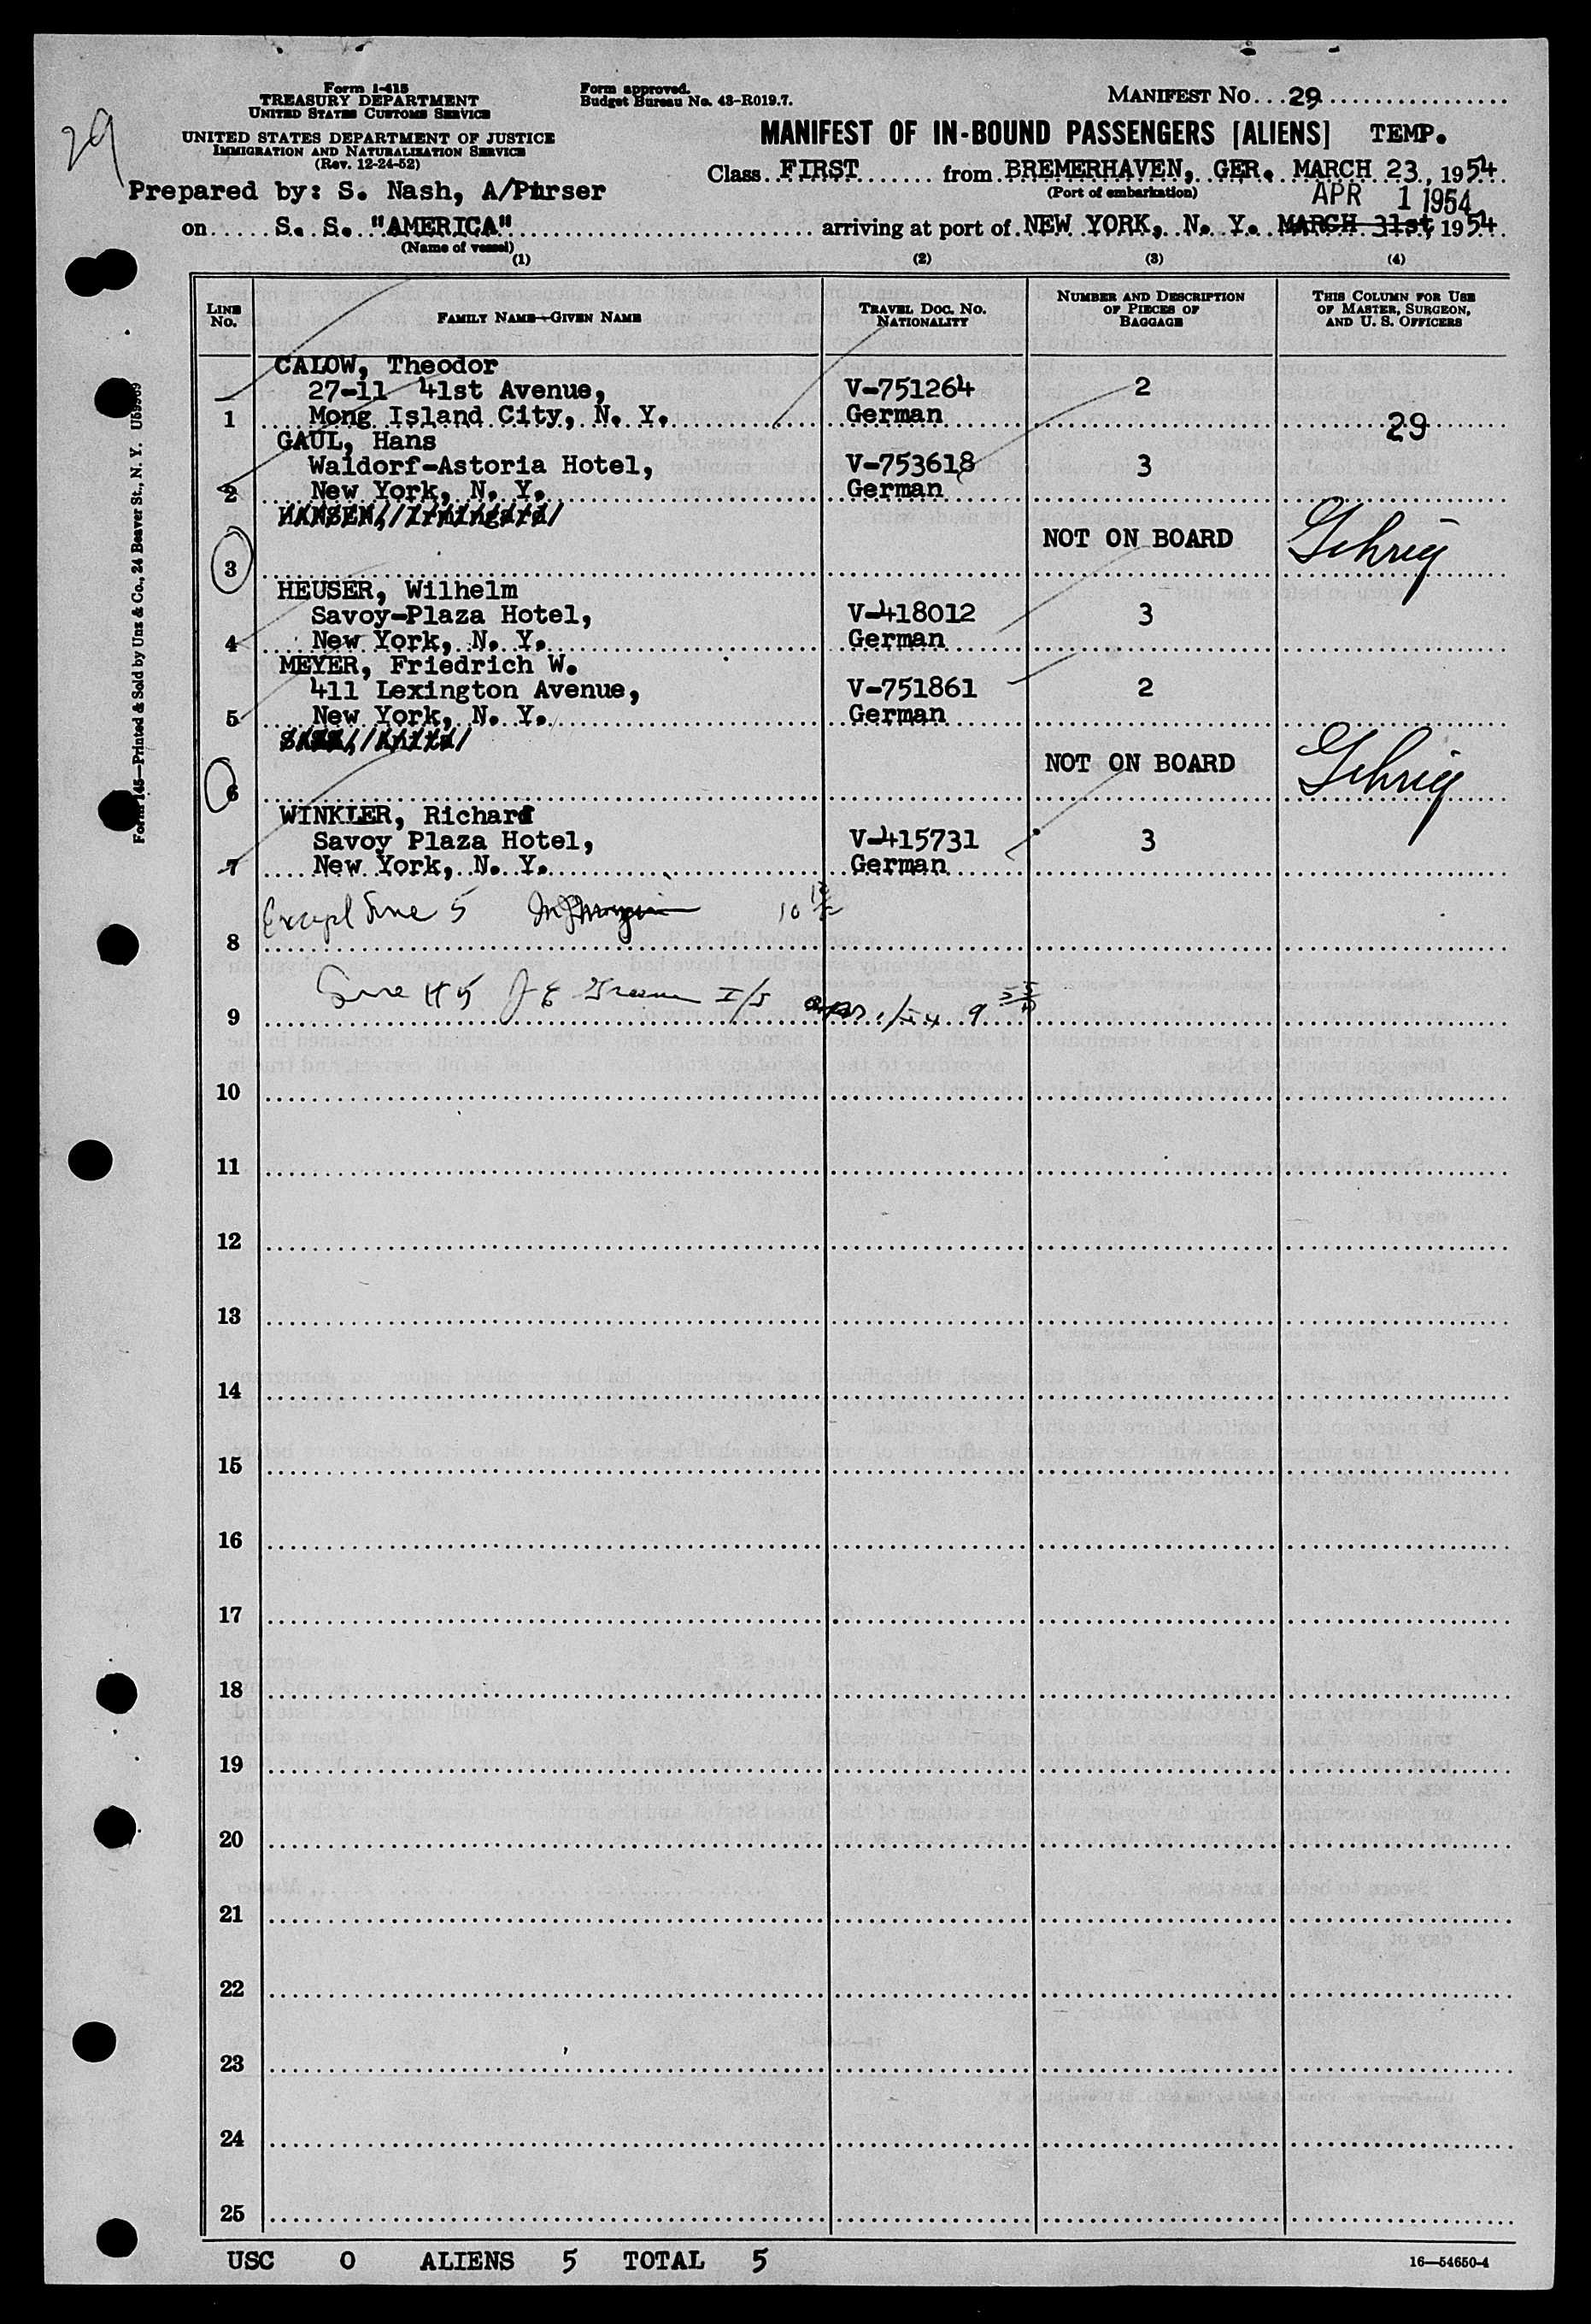 29
Form I-415
TREASURY DEPARTMENT
UNITED STATES CUSTOMS SERVICE
UNITED STATES DEPARTMENT OF JUSTICE
IMMIGRATION AND NATURALIZATION SERVICE
(Rev. 12-24-52)
Form approved.
Budget Bureau No. 43-R019.7.
MANIFEST NO. 29
MANIFEST OF IN-BOUND PASSENGERS [ALIENS] TEMP.
Class FIRST from BREMERHAVEN, GER. MARCH 23, 1954
(Port of embarkation)
Prepared by: S. Nash, A/Purser
APR 1 1954
on S. S. "AMERICA" arriving at port of NEW YORK, N. Y. MARCH 31st, 1954
(Name of vessel)
(1) (2) (3) (4)
LINE NO. FAMILY NAME—GIVEN NAME TRAVEL DOC. NO. NATIONALITY NUMBER AND DESCRIPTION OF PIECES OF BAGGAGE THIS COLUMN FOR USE OF MASTER, SURGEON, AND U. S. OFFICERS
CALOW, Theodor
27-11 41st Avenue, V-751264 2
1 Mong Island City, N. Y. German 29
GAUL, Hans
Waldorf-Astoria Hotel, V-753618 3
2 New York, N. Y. German
HANSEN, Irmingard
NOT ON BOARD Gehrig
3
HEUSER, Wilhelm
Savoy-Plaza Hotel, V-418012 3
4 New York, N. Y. German
MEYER, Friedrich W.
411 Lexington Avenue, V-751861 2
5 New York, N. Y. German
NOT ON BOARD Gehrig
6
WINKLER, Richard
Savoy Plaza Hotel, V-415731 3
7 New York, N. Y. German
Except Line 5 10
8
Line # 5
9
10
11
12
13
14
15
16
17
18
19
20
21
22
23
24
25
USC 0 ALIENS 5 TOTAL 5
16—54650-4
Form 145—Printed & Sold by Unz & Co., 24 Beaver St., N. Y. U59969